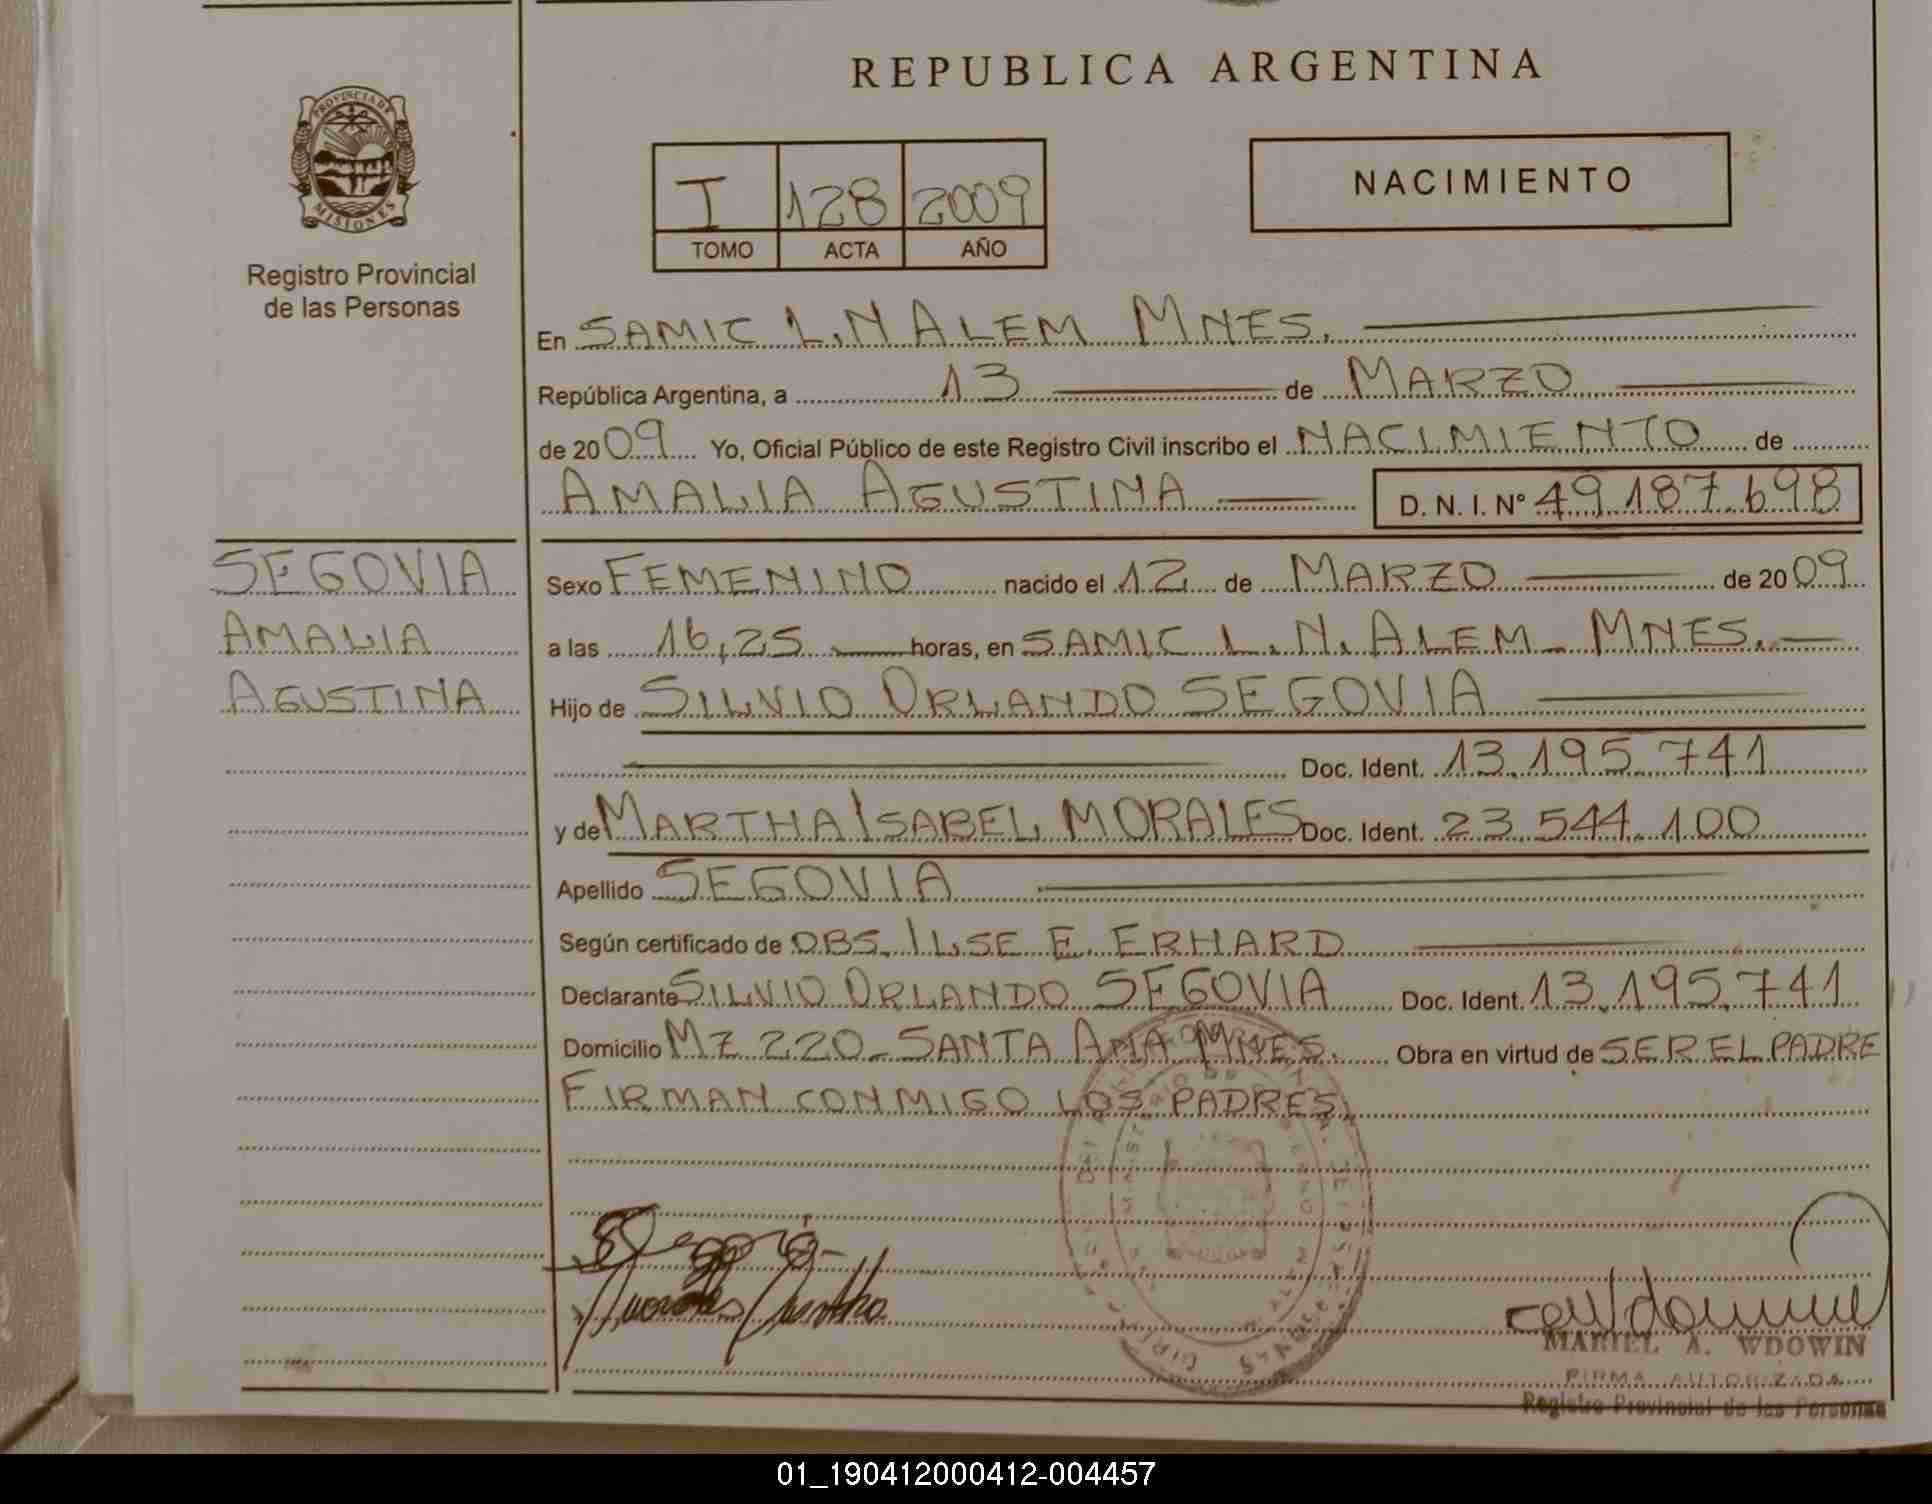 REPUBLICA ARGENTINA
PROVINCIA DE
MISIONES
Registro Provincial
de las Personas
I 128 2009
TOMO ACTA AÑO
NACIMIENTO
En SAMIC L.N ALEM MNES.
República Argentina, a 13 de MARZO
de 2009 Yo, Oficial Público de este Registro Civil inscribo el NACIMIENTO de
AMALIA AGUSTINA D. N. I. N° 49.187.698
SEGOVIA
AMALIA
AGUSTINA
Sexo FEMENINO nacido el 12 de MARZO de 2009
a las 16,25 horas, en SAMIC L.N. ALEM - MNES.
Hijo de SILVIO ORLANDO SEGOVIA
Doc. Ident. 13.195.741
y de MARTHA ISABEL MORALES Doc. Ident. 23.544.100
Apellido SEGOVIA
Según certificado de OBS. ILSE E. ERHARD
Declarante SILVIO ORLANDO SEGOVIA Doc. Ident. 13.195.741
Domicilio MZ 220 - SANTA ANA MNES. Obra en virtud de SER EL PADRE
FIRMAN CONMIGO LOS PADRES.
Segovia
Morales Martha
MARIEL A. WDOWIN
FIRMA AUTORIZADA
Registro Provincial de las Personas
01_190412000412-004457